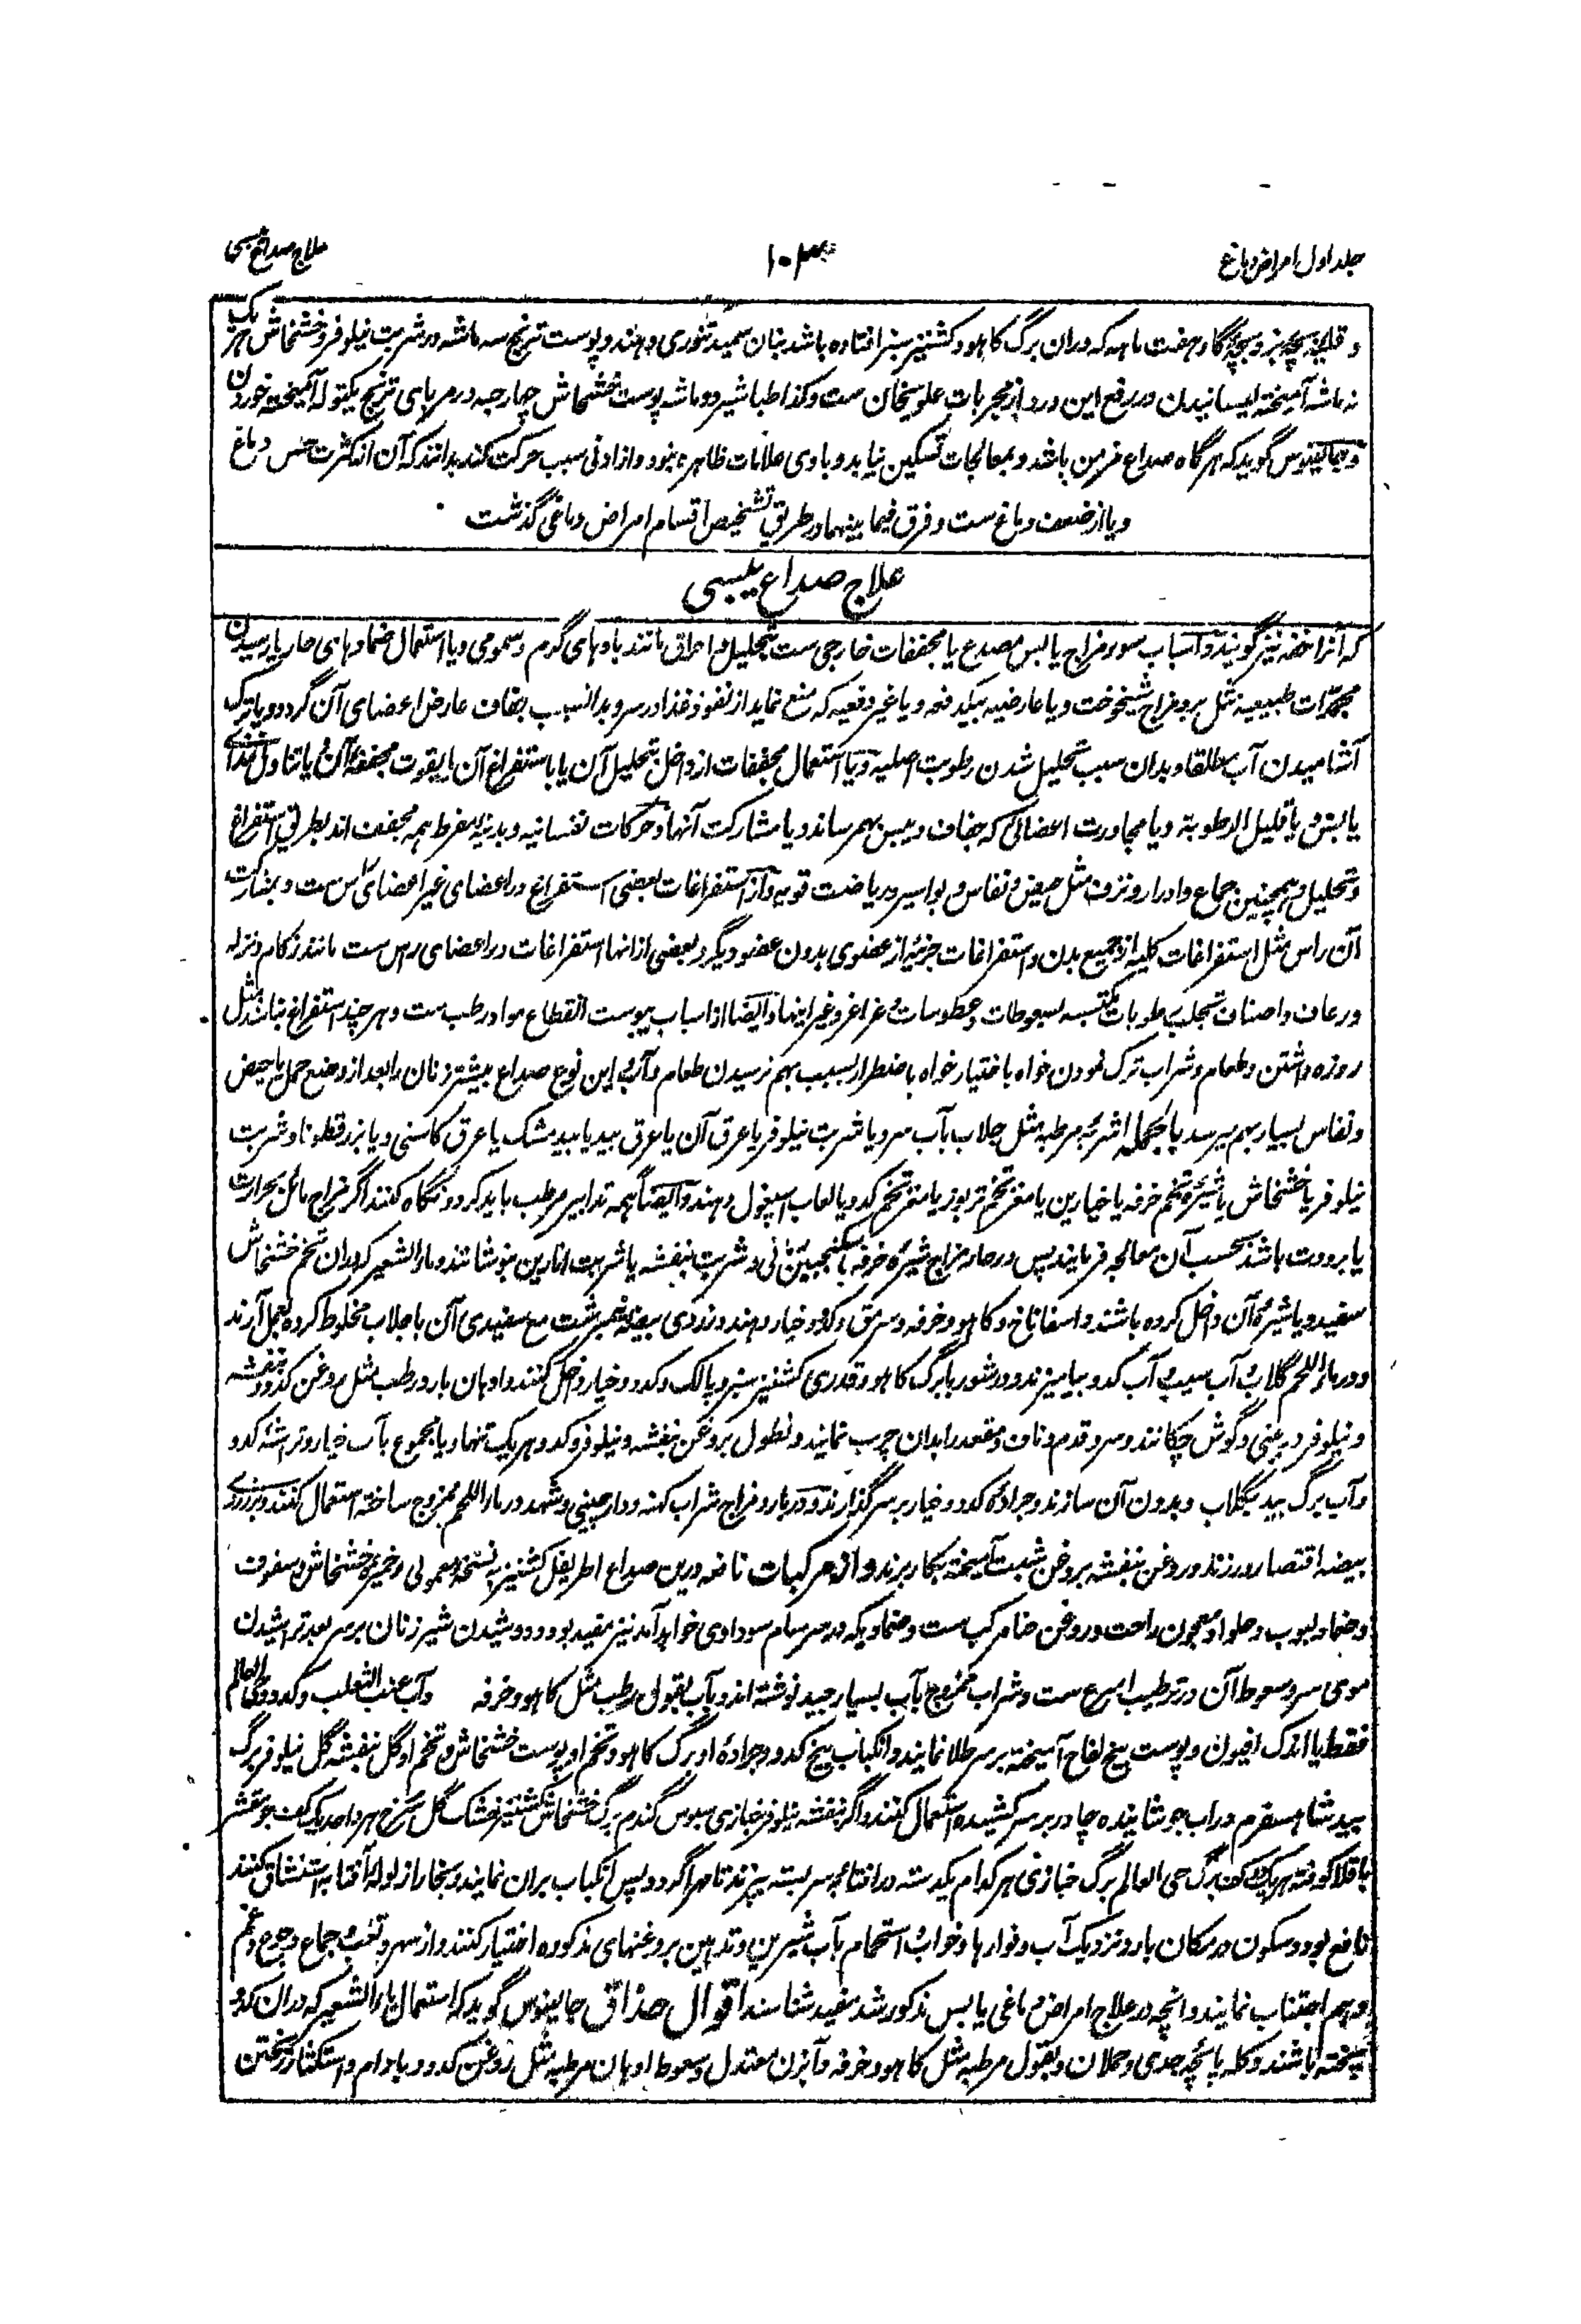 جلد اول امراض دماغ
۱۰۳
علاج صداع یبسی
و قلیه بچه بز و بچه گاو هفت ماهه که دران برگ کاهو و کشنیز سبز افتاده باشد بنان سمید تنوری دهند و پوست ترنج سه ماشه در شربت نیلوفر و خشخاش هر یک
نه ماشه آمیخته لیسانیدن در رفع این درد از مجربات علویخان ست و کذا طباشیر دو ماشه پوست خشخاش چهار حبه در مربای ترنج یکتوله آمیخته خوردن
و جالینوس گوید که هرگاه صداع مزمن باشد و بمعالجات تسکین نیابد و با وی علامات ظاهره نبود و از ادنی سبب حرکت کند بدانند که آن از کثرت حس دماغ
و یا از ضعف دماغ ست و فرق فیما بینهما در طریق تشخیص اقسام امراض دماغی گذشت
علاج صداع یبسی
که آنرا خفه نیز گویند و اسباب سوء مزاج یابس مصدع یا مجففات خارجی ست بتحلیل و احراق مانند بادهای گرم و سمومی و یا استعمال ضمادهای حار یا رسیدن
مجمدات طبیعیه مثل برد مزاج شیخوخت و یا عارضیه بیکدفعه و یا غیر دفعیه که منع نماید از نفوذ غذا در سر و بدانسبب جفاف عارض اعضای آن گردد و یا ترک
آشامیدن آب مطلقا و بدان سبب تحلیل شدن رطوبت اصلیه و یا استعمال مجففات از داخل بتحلیل آن یا باستفراغ آن یا بقوت مجففه آن و یا تناول غذای
یابس و یا قلیل الرطوبة و یا مجاورت اعضائی که جفاف و یبس بهم رساند و یا مشارکت آنها و حرکات نفسانیه و بدنیه مفرط همه مجفف اند بطریق استفراغ
و تحلیل و همچنین جماع و ادرار و نزف مثل حیض و نفاس و بواسیر و ریاضت قویه و از استفراغات بعضی استفراغ در اعضای غیر اعضای راس ست و بمشارکت
آن راس مثل استفراغات کلیه از جمیع بدن و استفراغات جزئیه از عضوی بدون عضو دیگر و بعضی از انها استفراغات در اعضای راس ست مانند زکام و نزله
و رعاف و اصناف تجلب رطوبات مکتسبه بسعوطات و عطوسات و غراغر و غیر اینها و ایضا از اسباب یبوست انقطاع مواد رطب ست و هر چند استفراغ نباشد مثل
روزه داشتن و طعام و شراب ترک نمودن خواه باختیار خواه باضطرار بسبب بهم نرسیدن طعام و آب و این نوع صداع بیشتر زنان را بعد از وضع حمل یا حیض
و نفاس بسیار بهم میرسد بالجمله اشربه مرطبه مثل جلاب بآب سرد یا شربت نیلوفر با عرق آن یا عرق بید یا بید مشک یا عرق کاسنی و یا بزرقطونا و شربت
نیلوفر یا خشخاش با شیره تخم خرفه یا خیارین یا مغز تخم تربوز یا مغز تخم کدو یا لعاب اسپغول دهند و ایضا همه تدابیر مرطب باید کرد و نگاه کنند اگر مزاج مائل بحرارت
یا برودت باشد بحسب آن معالجه فرمایند پس در حار مزاج شیره خرفه با سکنجبین و شربت بنفشه یا شربت انارین بنوشانند و ماء الشعیر که دران تخم خشخاش
سفید و یا شیره آن داخل کرده باشند و اسفاناخ و کاهو و خرفه و سرمق و کدو و خیار دهند و زردی بیضه نیمبرشت مع سفیدی آن با جلاب مخلوط کرده بعمل آرند
و در ماء اللحم گلاب و آب سیب و آب کدو بیامیزند و در شوربا برگ کاهو و قدری کشنیز سبز و پالک و کدو و خیار داخل کنند و ادهان بارد رطب مثل روغن کدو و بنفشه
و نیلوفر در بینی و گوش چکانند و سر و قدم و ناف و مقعد را بدان چرب نمایند و نطول بروغن بنفشه و نیلوفر و کدو هر یک تنها و یا مجموع بآب خیار و تراشه کدو
و آب برگ بید بگلاب و بدون آن سازند و جراده کدو و خیار بر سر گذارند و در بارد مزاج شراب کهنه و دارچینی و شهد در ماء اللحم ممزوج ساخته استعمال کنند و بر زردی
بیضه اقتصار ورزند و روغن بنفشه بروغن شبت آمیخته بکار برند و از مرکبات نافعه درین صداع اطریفل کشنیز به نسخه معمولی و خمیره خشخاش و سفوف
و ضماد لبوب و حلوا و معجون راحت و روغن حنا مرکب ست و ضمادیکه در سرسام سوداوی خواهد آمد نیز مفید بود و دوشیدن شیر زنان بر سر بعد تراشیدن
موی سر و سعوط آن در ترطیب اسرع ست و شراب ممزوج بآب بسیار جید نوشته اند و بآب بقول رطب مثل کاهو و خرفه و آب عنب الثعلب و کدو و حی العالم
فقط یا اندک افیون و پوست بیخ لفاح آمیخته بر سر طلا نمایند و انکباب بیخ کدو و جراده او برگ کاهو و تخم او پوست خشخاش و تخم او گل بنفشه گل نیلوفر برگ
بید شاهسفرم در آب جوشانیده چادر بر سر کشیده استعمال کنند و اگر بنفشه نیلوفر خبازی سبوس گندم برگ خشخاش کشنیز خشک گل سرخ هر واحد یک کف جو مقشر
باقلا کوفته هر یک دو کف برگ حی العالم برگ خبازی هر کدام یکدسته در آفتابه سر بسته بپزند تا مهرا گردد پس انکباب بران نمایند و بخار از لوله آفتابه استنشاق کنند
نافع بود و سکون در مکان بارد و نزدیک آب و فوارها و خواب و استحمام بآب شیرین و تدهین بروغنهای مذکوره اختیار کنند و از سهر و تعب و جماع و جوع و غم
و هم اجتناب نمایند و انچه در علاج امراض دماغی یابس مذکور شد مفید شناسند اقوال حذاق جالینوس گوید که استعمال ماء الشعیر که دران کدو
پخته باشند و کله پائچه جدی و حملان و بقول مرطبه مثل کاهو و خرفه و آبزن معتدل و سعوط ادهان مرطبه مثل روغن کدو و بادام و استکثار ریختن